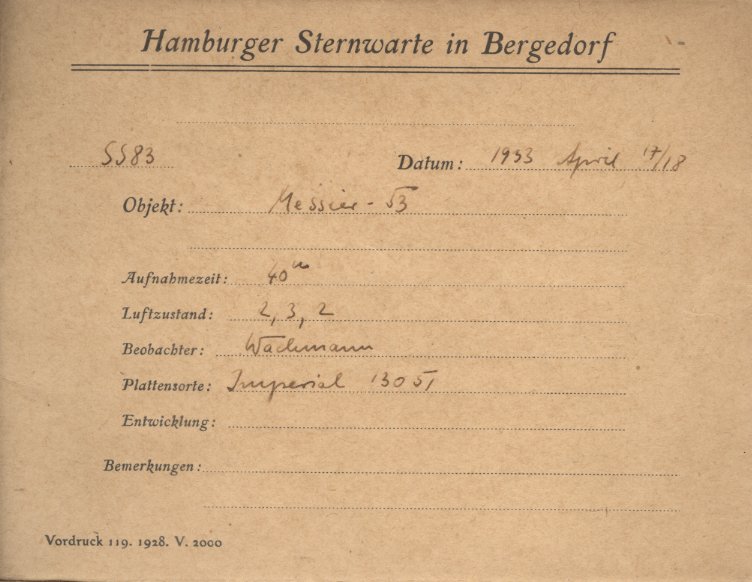 Hamburger Sternwarte in Bergedorf
SS83 Datum: 1933 April 17/18
Objekt: Messier - 53
Aufnahmezeit: 40m
Luftzustand: 2, 3, 2
Beobachter: Wachmann
Plattensorte: Imperial 13051
Entwicklung:
Bemerkungen:
Vordruck 119. 1928. V. 2000